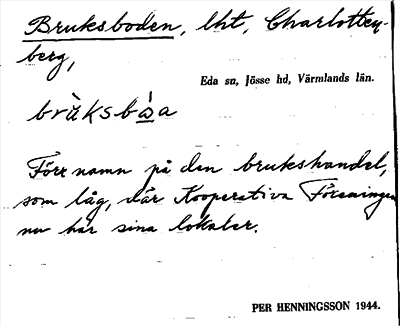 Bruksboden, lht, Charlotten-
berg,
Eda sn, Jösse hd, Värmlands län.
brùksbɷ̀a
Förr namn på den brukshandel,
som låg, där Kooperativa Föreningen
nu har sina lokaler.
PER HENNINGSSON 1944.